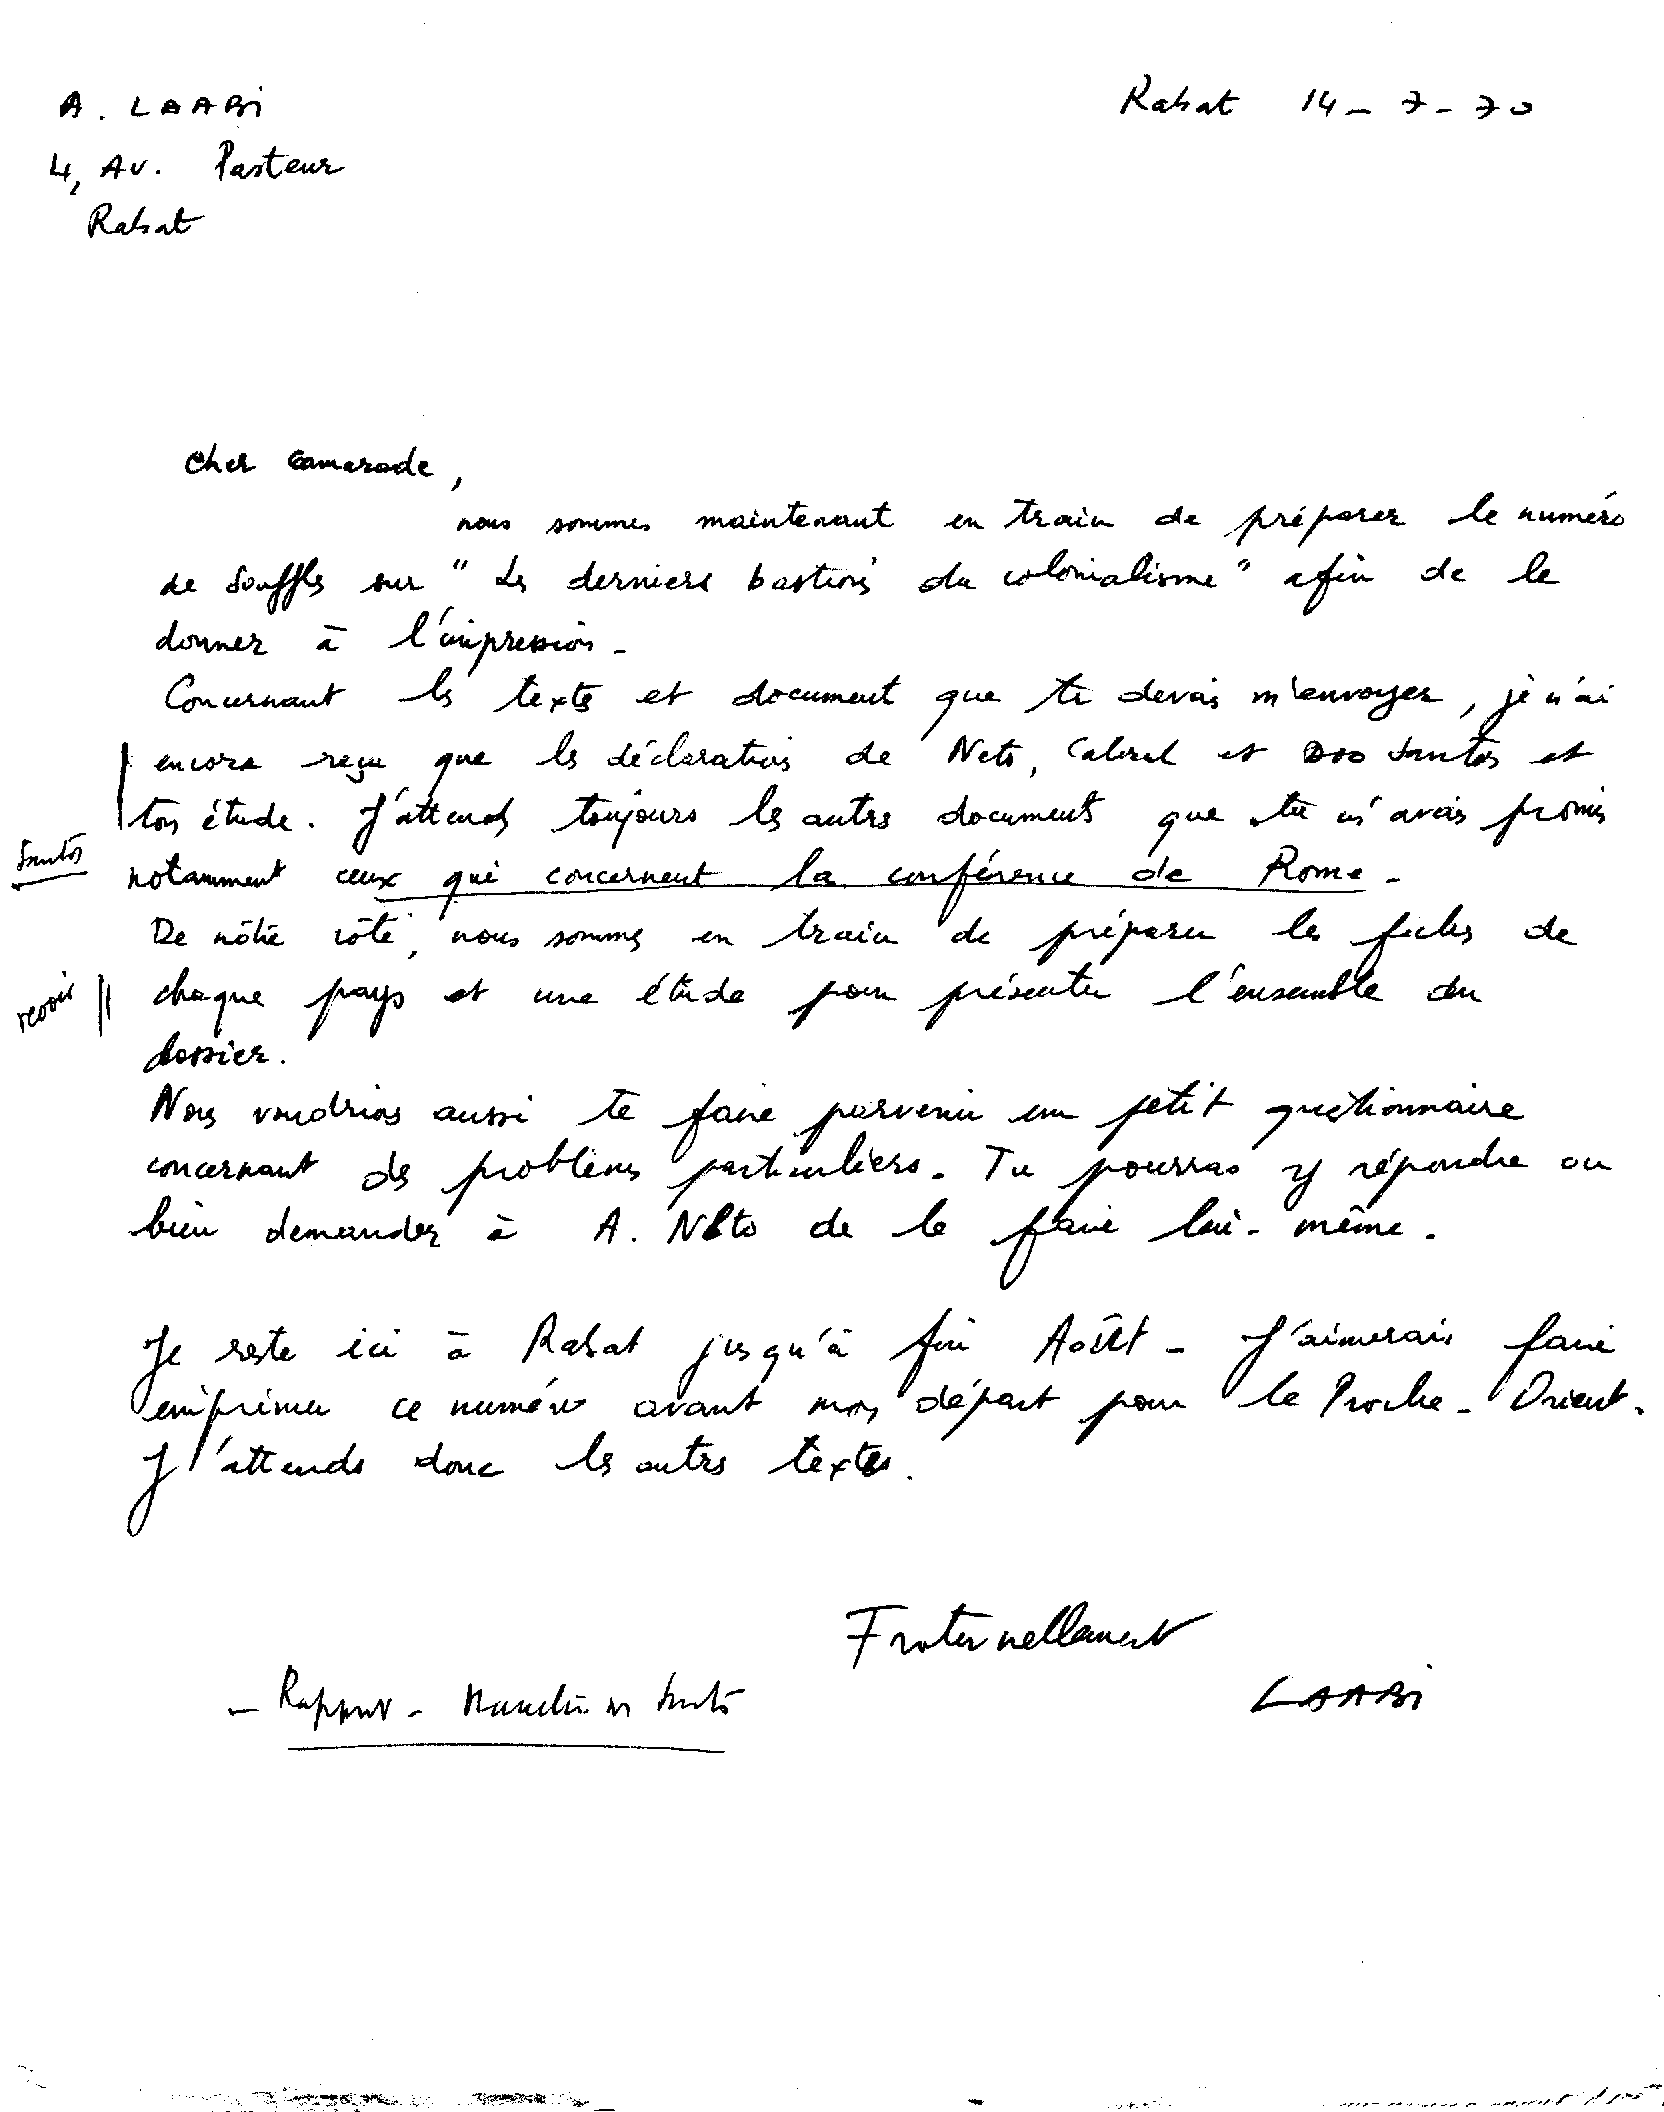 A. LAABI
Rabat 14-7-70
4, Av. Pasteur
Rabat
Cher camarade,
nous sommes maintenant en train de préparer le numéro
de Souffles sur "Les derniers bastions du colonialisme" afin de le
donner à l'impression.
Concernant les textes et document que tu devais m'envoyer, je n'ai
encore reçu que les déclarations de Neto, Cabral et Dos Santos et
ton étude. J'attends toujours les autres documents que tu m'avais promis
Santos
notamment ceux qui concernent la conférence de Rome.
De nôtre côté, nous sommes en train de préparer les fiches de
revoir
chaque pays et une étude pour présenter l'ensemble du
dossier.
Nous voudrions aussi te faire parvenir un petit questionnaire
concernant des problèmes particuliers. Tu pourras y répondre ou
bien demander à A. Neto de le faire lui-même.
Je reste ici à Rabat jusqu'à fin Août - J'aimerais faire
imprimer ce numéro avant mon départ pour le Proche-Orient.
J'attends donc les autres textes.
Fraternellement
LAABI
- Rapport -